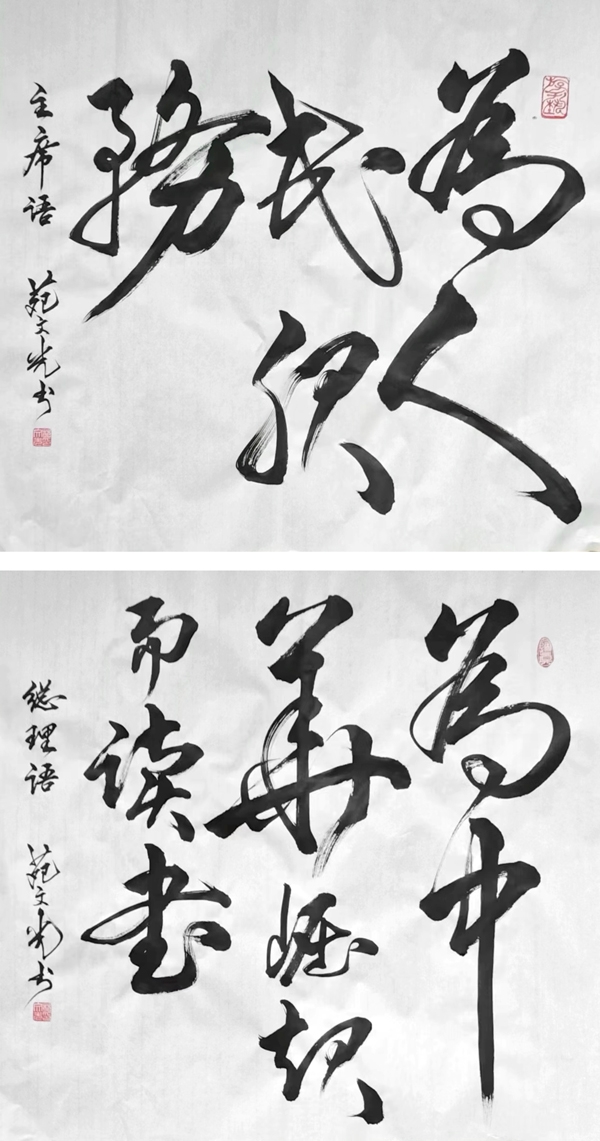 為人
民服
務
主席语 苑文光书
為中
華崛起
而读书
總理语 苑文光书